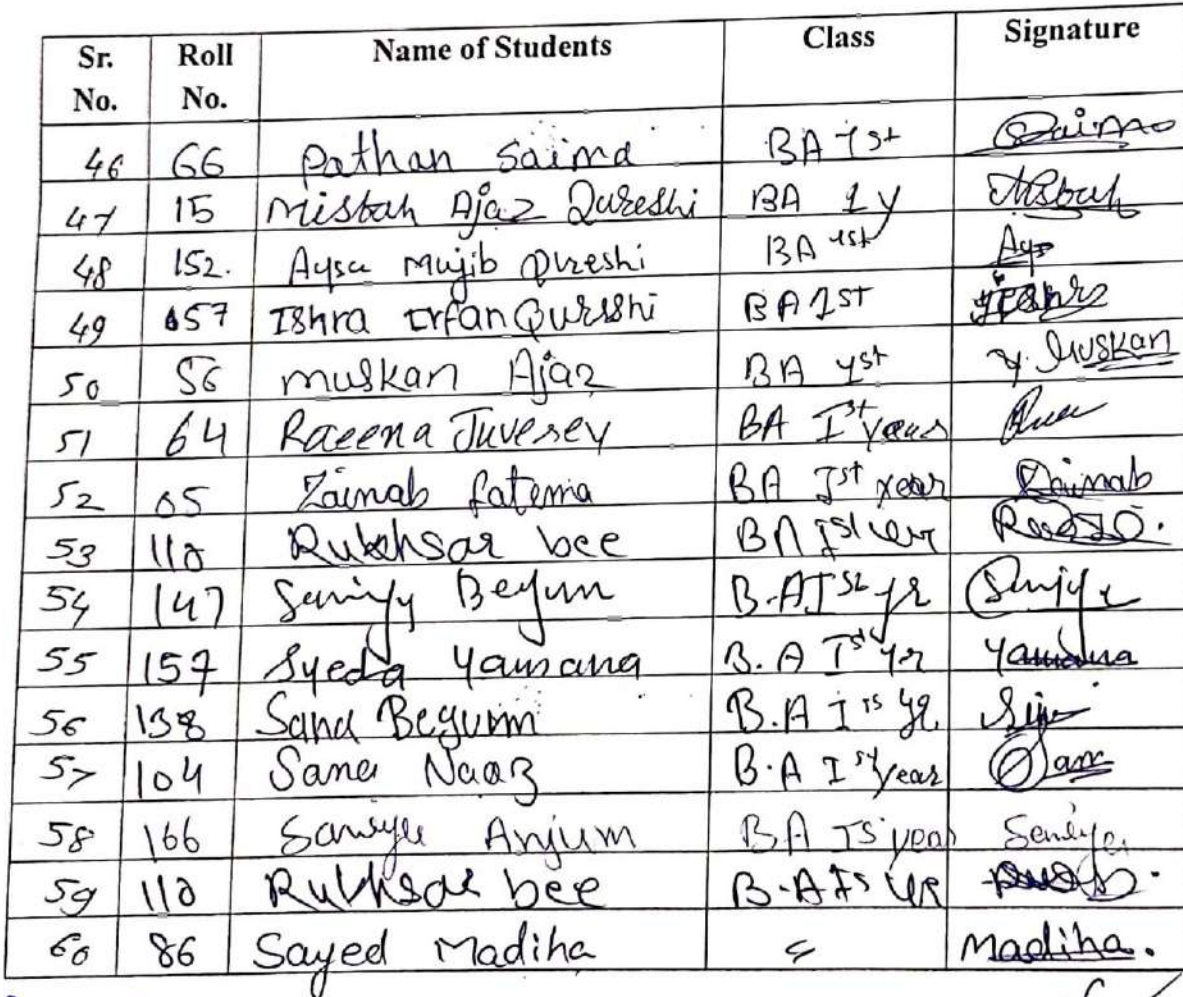 Sr. No. Roll No. Name of Students Class Signature
46 66 Pathan Saima BA 1st Saima
47 15 Misbah Ajaz Qureshi BA 1y Misbah
48 152. Aysa Mujib Qureshi BA 1st Ays
49 57 Ishra Irfan Qursshi BA 1st
50 56 muskan Ajaz BA 1st Muskan
51 64 Raeena Juverey BA Ist years
52 05 Zainab fatema BA Ist year Zainab
53 110 Rukhsar bee BA Ist
54 147 Begum B.A Ist yr
55 157 Syeda Yamana B.A Ist yr Yamana
56 138 Sana Begum B.A Is yr
57 104 Sana Naaz B.A Ist year Sana
58 166 Anjum BA Is year
59 110 Rukhsar bee B.A Is yr
60 86 Sayed Madiha " Madiha.